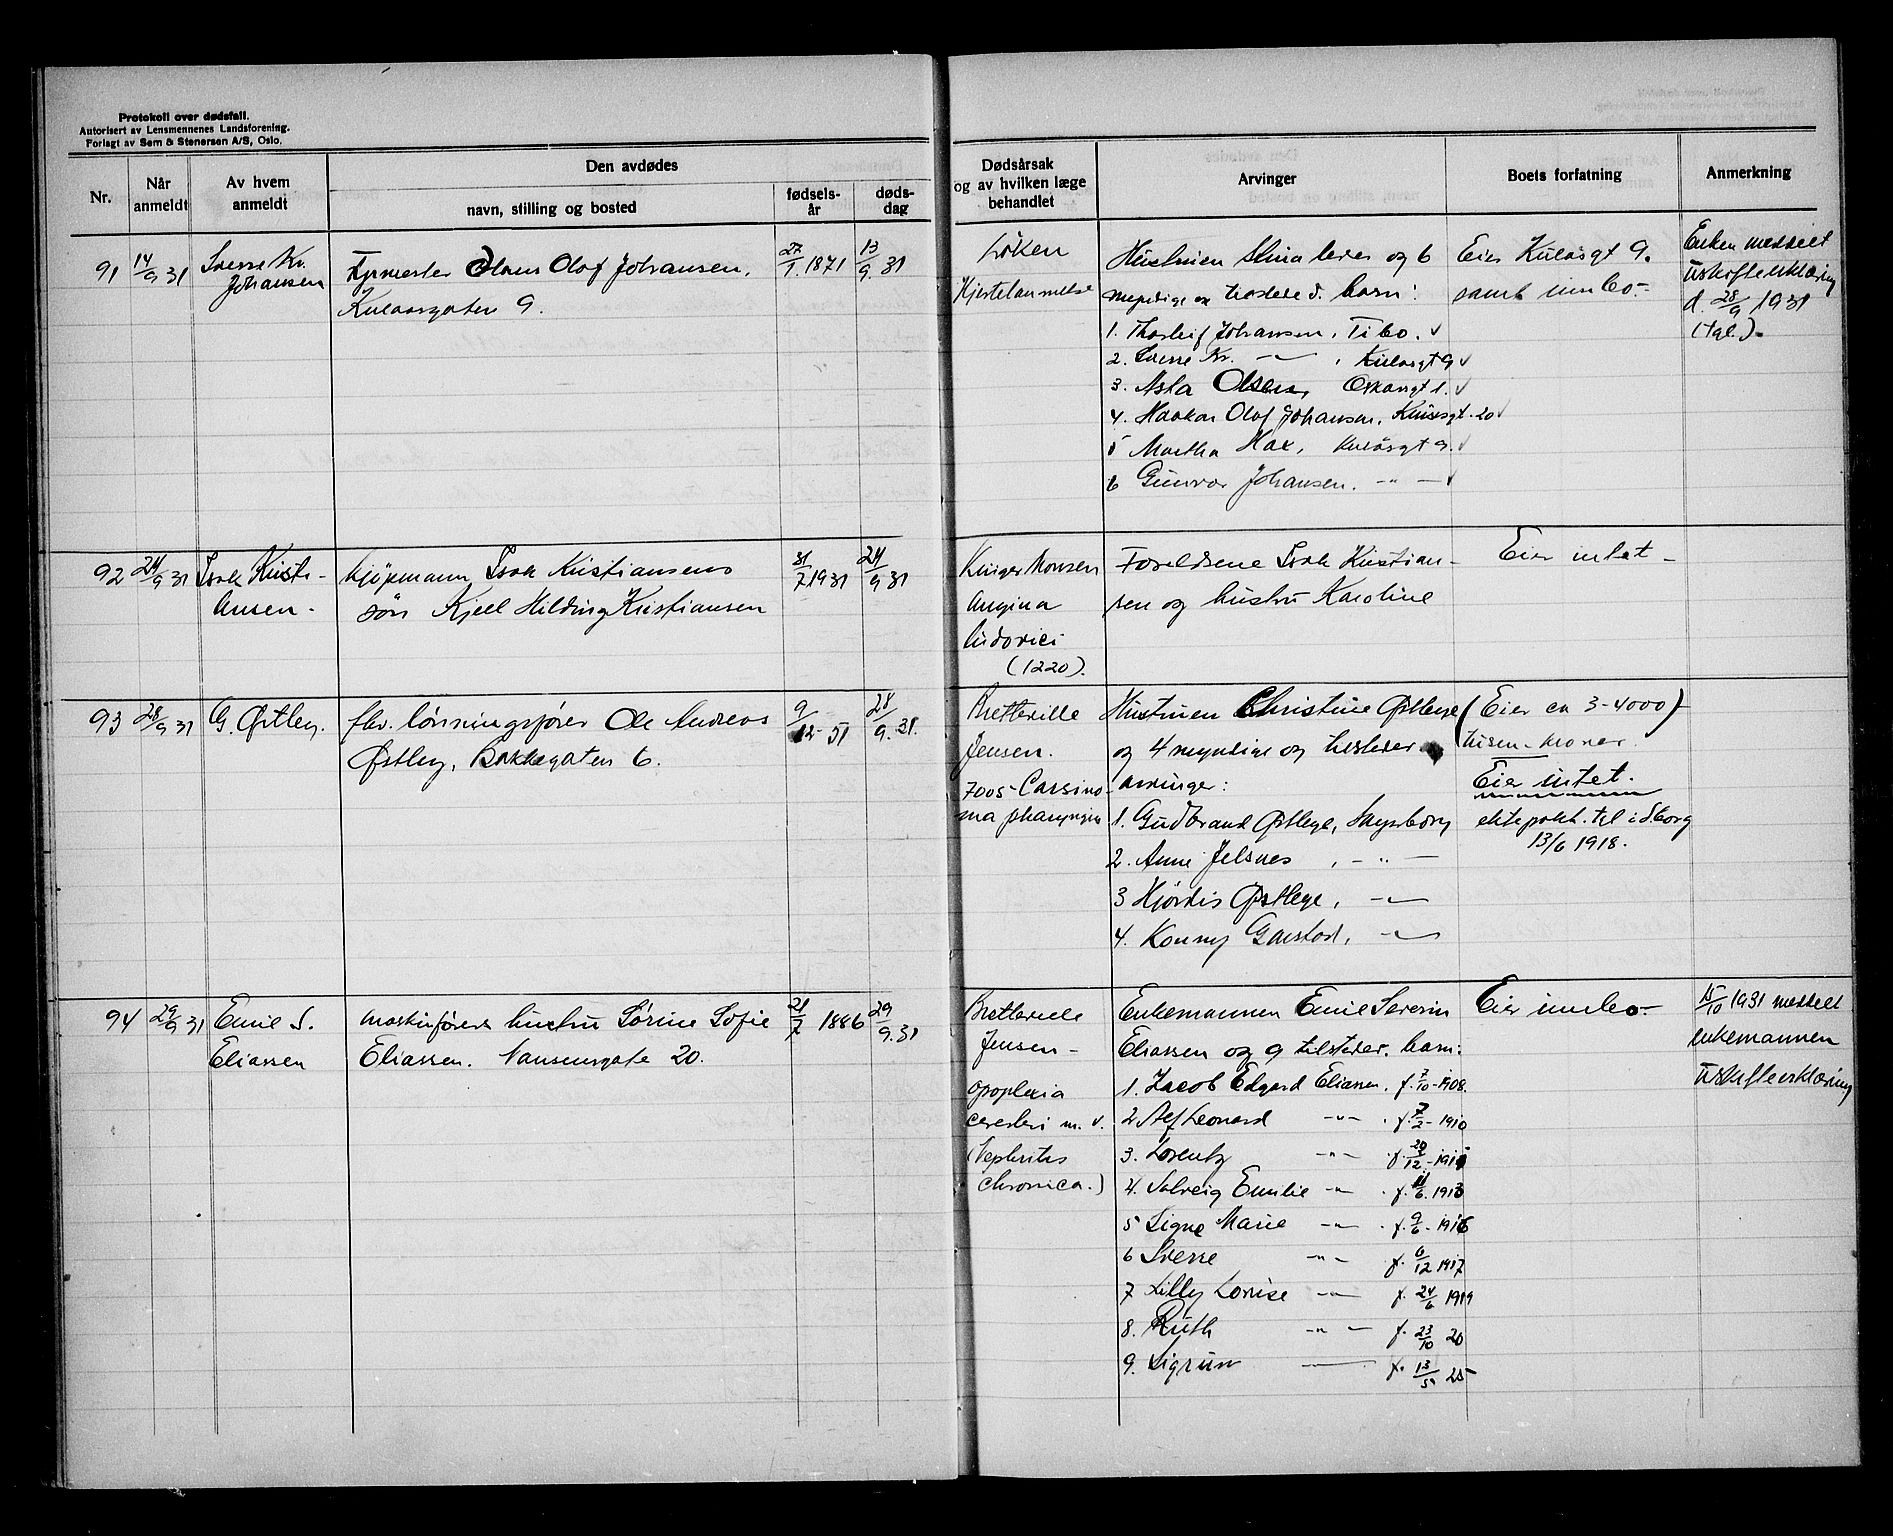 Protokoll over dødsfall.
Autorisert av Lensmennenes Landsforening.
Forlagt av Sem & Stenersen A/S, Oslo.
Nr.
Når anmeldt
Av hvem anmeldt
Den avdødes
navn, stilling og bosted
fødsels-år
døds-dag
Dødsårsak og av hvilken læge behandlet
Arvinger
Boets forfatning
Anmerkning
91 14/9 31 Sverre Kr. Johansen
Fyrmester Hans Olaf Johansen,
Kulaasgaten 9.
27/1. 1871
13/9. 31
Løken
Hjertelammelse
Hustruen Stina lever og 6
myndige og tilstede d. barn:
1. Thorleif Johansen, Tibo. ✓
2. Sverre Kr. —"— , Kulåsgt 9 ✓
3. Asta Olsen, Oskarsgt 1. ✓
4. Haakon Olaf Johansen, Kulåsgt. 20 ✓
5 Martha Hax, Kulåsgt 9. ✓
6 Gunvor Johansen. —"— ✓
Eier Kulåsgt 9.
samt innbo.-
Enken meddelt
uskifteerklæring
d. 28/9 1931
(tgl.).
92 24/9 31 Isak Kristi-
ansen -
kjøpmann Isak Kristiansens
sön Kjell Hilding Kristiansen
31/7 1931
24/9 31
Monsen
Angina
ludovici
(1220).
Foreldrene Isak Kristian-
sen og hustru Karoline
Eier intet -
93 28/9 31 G. Østby.
fhv. lönningsfører Ole Andreas
Østby, Bakkegaten 6.
9/12- 51
28/9. 31
Bretteville
Jensen.
7005- Carsino-
ma pharyngis
Hustruen Christine Østbye
og 4 myndige og tilstedev.
arvinger:
1. Gudbrand Østbye, Sarpsborg
2. Anne Jelsnes , —"—
3 Hjørdis Østbye, —"—
4. Konny Garstad, —"—
(Eier ca 3-4000)
tusen kroner.
Eier intet.
ektepakt. tgl i Sborg
13/6 1918.
94 29/9 31 Emil S.
Eliassen
maskinfører hustru Sørine Sofie
Eliassen. Nansensgate 20.
21/7 1886
29/9. 31
Bretteville
Jensen -
apoplexia
cerebri m. v.
(Nephritis
chronica.)
Enkemannen Emil Severin
Eliassen og 9 tilstedev. barn:
1. Jacob Edgard Eliassen. f. 7/10-1908.
2 Alf Leonard —"— . f. 7/2- 1910
3. Lorentz —"— f. 20/12-1911
4. Solveig Emilie —"— . f. 11/6. 1913
5 Signe Marie —"— . f. 9/6- 1916
6 Sverre —"— f. 6/12 1917
7 Lilly Louise —"— f. 24/6 1919
8. Ruth —"— f. 23/10 20
9. Sigrun —— f. 13/5 25
Eier innbo.-
15/10 1931 meddelt
enkemannen
uskifteerklæring